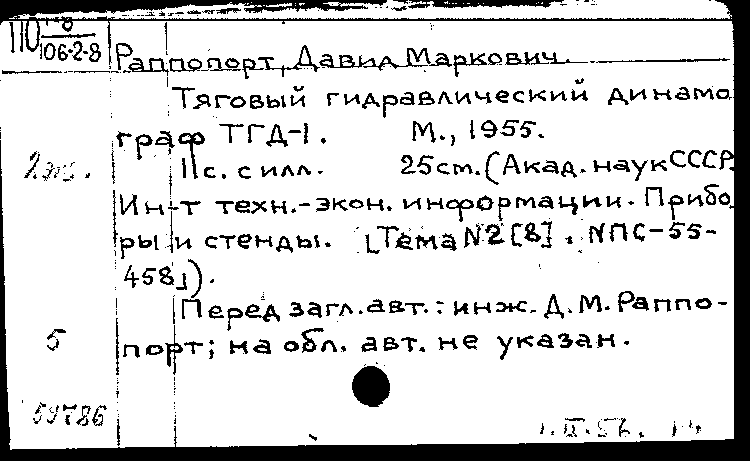 П0 106-2-8
Раппопорт, Давид Маркович.
Тяговый гидравлический динамо
граф ТГД-1. М., 1955.
11с. с илл. 25см. (Акад. наук СССР.
2экз.
Ин-т техн.-экон. информации. Прибо
ры и стенды. [Тема №2[8]. №ПС-55-
458]).
Перед загл. авт.: инж. Д. М. Раппо-
5
порт; на обл. авт. не указан.
59786